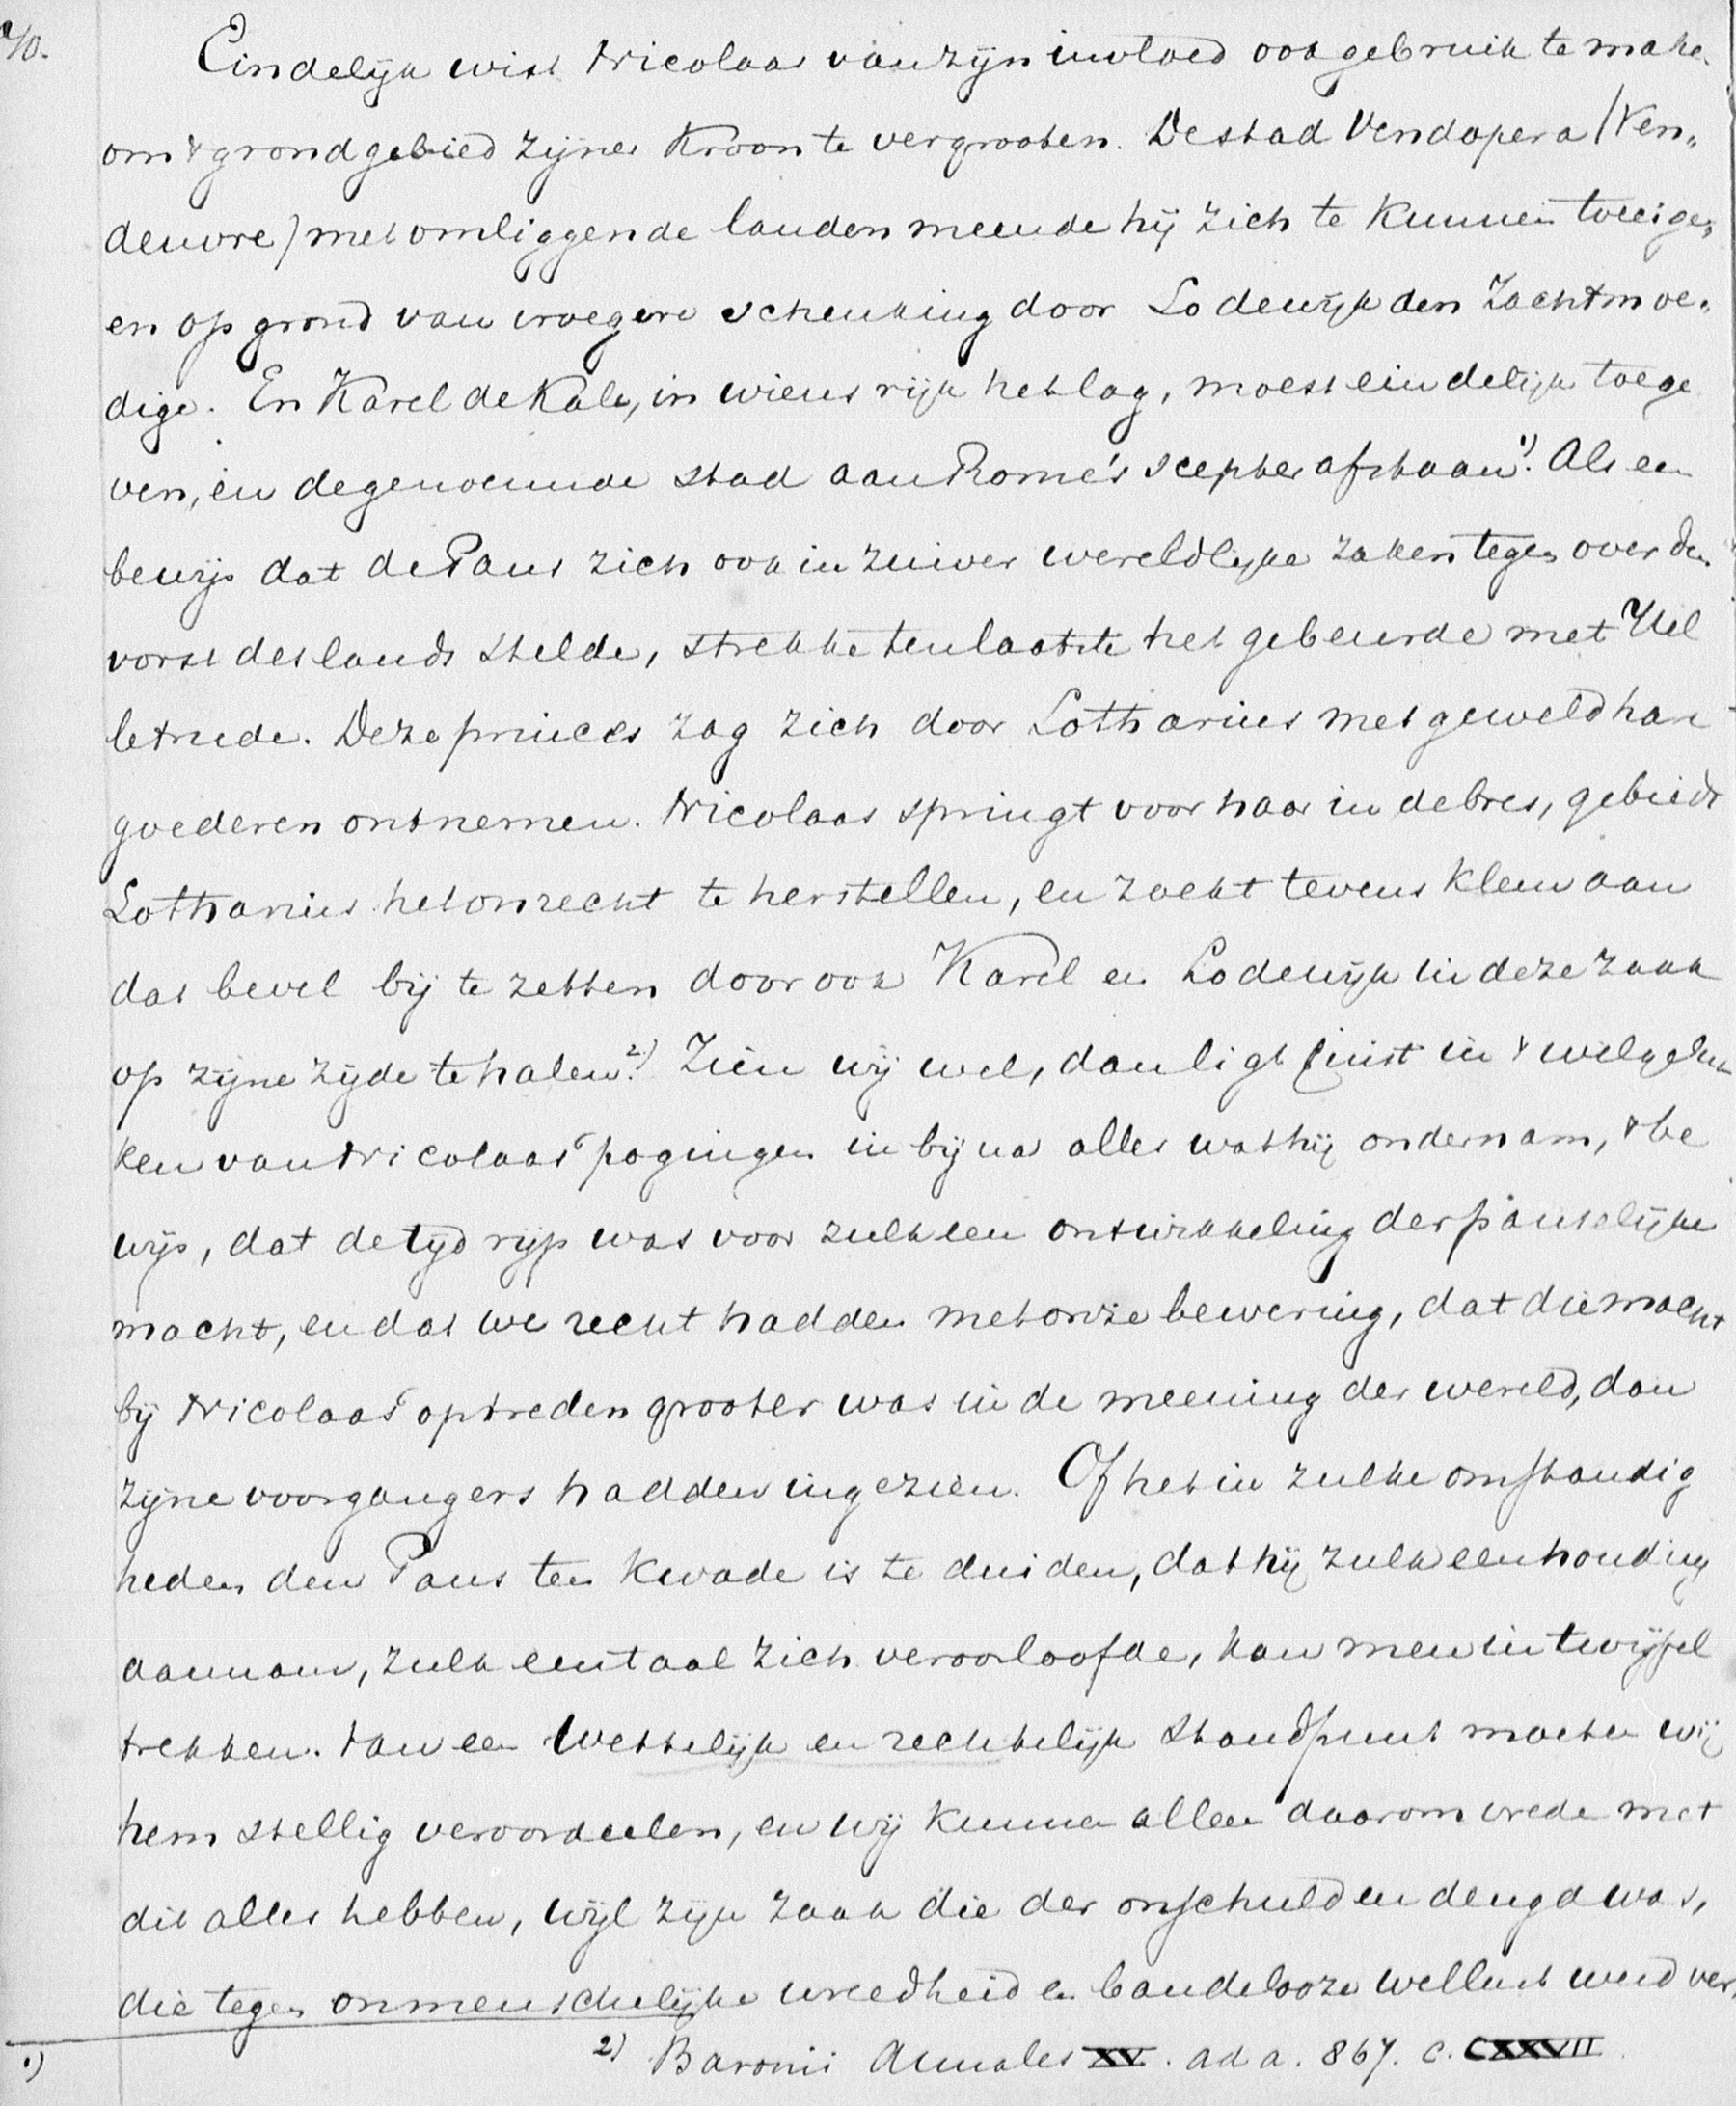 Eindelijk wist Nicolaas van zijn invloed ook gebruik te make
om 't grondgebied zijner Kroon te vergrooten. De stad Vendopera (Ven„
deuvre) met omliggende landen meende hij zich te kunnen toeeige„
en op grond van vroegere schenking door Lodewijk den Zachtmoe„
dige. En Karel de Kale, in wiens rijk het lag, moest eindelijk toege
ven, en de genoemde stad aan Rome's scepter afstaan 1). Als een
bewijs dat de Paus zich ook in zuiver wereldlijke zaken tegenover den
vorst des lands stelde, strekke ten laatste het gebeurde met Hel
letrude. Deze princes zag zich door Lotharius met geweld hare
goederen ontnemen. Nicolaas springt voor haar in de bres, gebiedt
Lotharius het onrecht te herstellen, en zoekt tevens klem aan
dat bevel bij te zetten door ook Karel en Lodewijk in deze zaak
op zijne zijde te halen 2). Zien wij wel, dan ligt juist in 't welgeluk
ken van Nicolaas' pogingen in bijna alles wat hij ondernam, 't be
wijs, dat de tijd rijp was voor zulk een ontwikkeling der pauselijke
macht, en dat we recht hadden met onze bewering, dat die macht
bij Nicolaas' optreden grooter was in de meening der wereld, dan
zijne voorgangers hadden ingezien. Of het in zulke omstandig
heden den Paus ten kwade is te duiden, dat hij zulk een houding
aannam, zulk een taal zich veroorloofde, kan men in twijfel
trekken. Van een wettelijk en rechtelijk standpunt moeten wij
hem stellig veroordeelen, en wij kunnen alleen daarom vrede met
dit alles hebben, wijl zijn zaak die der onschuld en deugd was,
die tegen onmenschelijke wreedheid en bandelooze wellust werd ver„
1) 2) Baronii Annales XV. ad a. 867. c. CXXVII